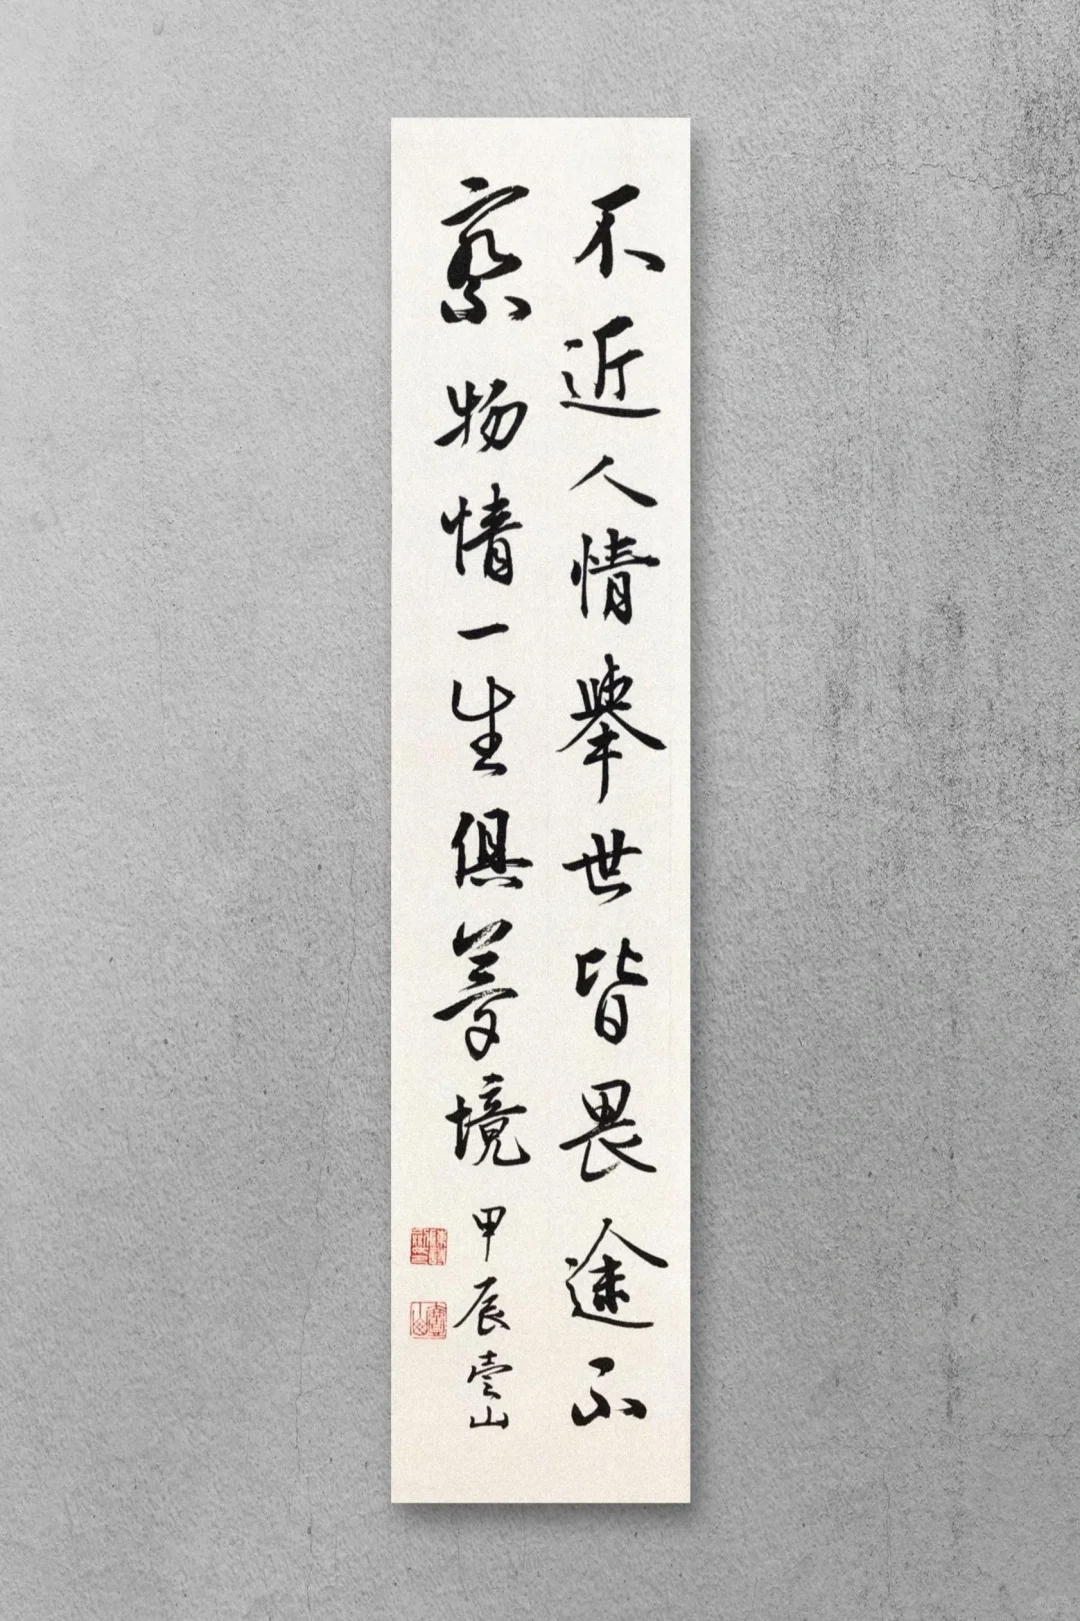 不近人情舉世皆畏途不
察物情一生俱夢境
甲辰 山